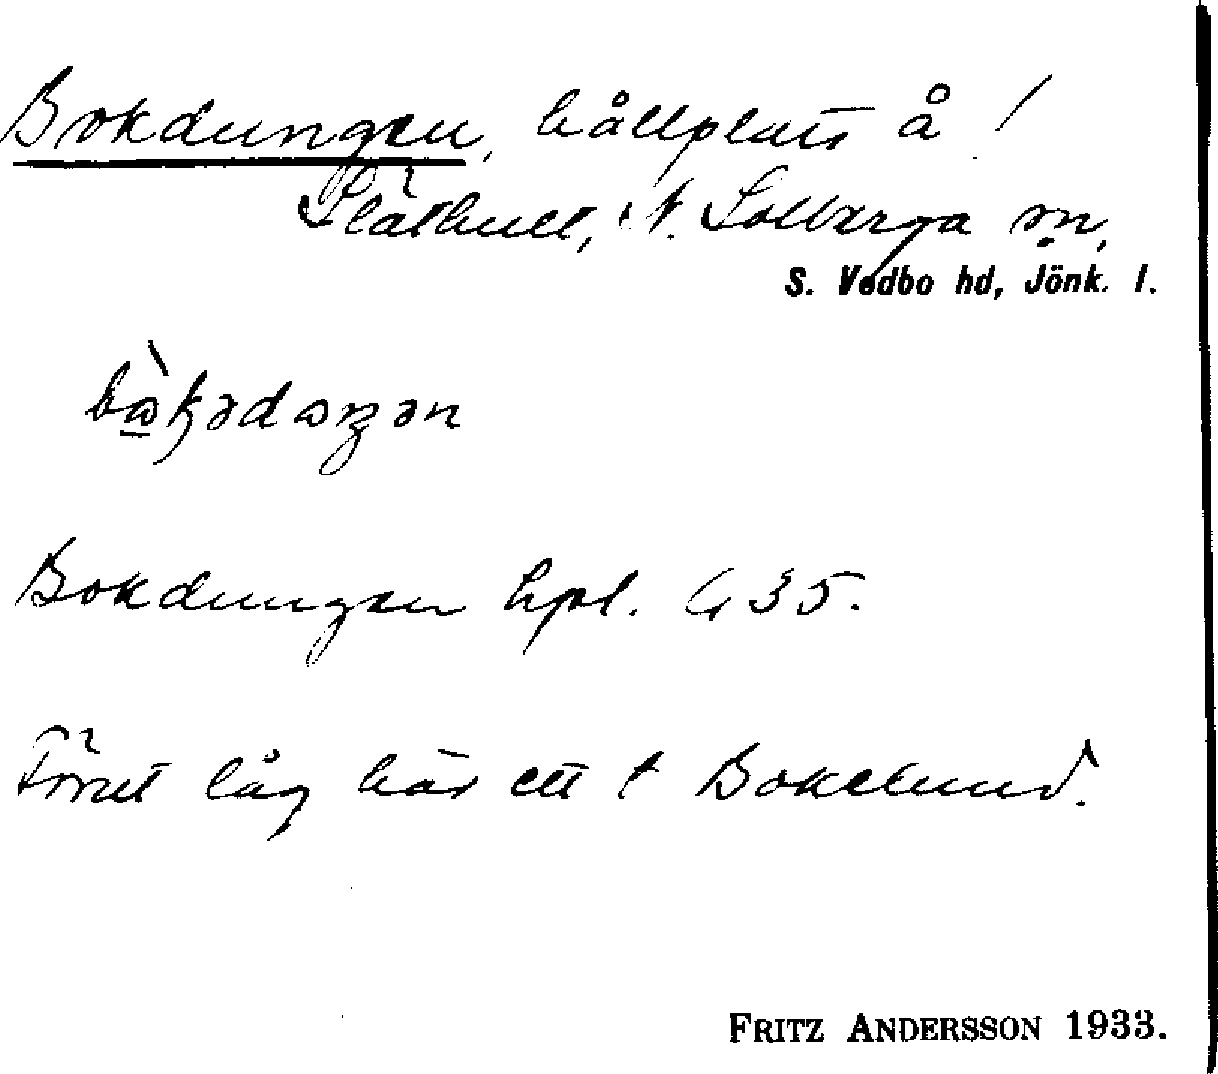 Bokdungen, hållplats å /
Släthult, N. Solberga sn,
S. Vedbo hd, Jönk. l.
Bokdungen hpl. G 35.
Förut låg här ett t Bokelund.
FRITZ ANDERSSON 1933.